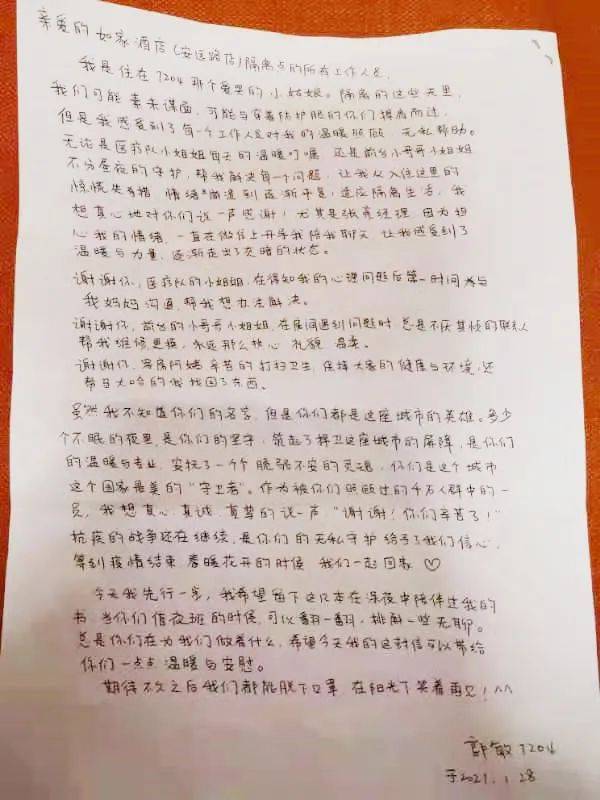 亲爱的如家酒店(安医路店)隔离点的所有工作人员,
我是住在7204那个爱哭的小姑娘。隔离的这些天里,
我们可能素未谋面,可能与穿着防护服的你们擦肩而过,
但是我感受到了每一个工作人员对我的温暖照顾,无私帮助。
无论是医疗队小姐姐每天的温暖叮嘱,还是前台小哥哥小姐姐
不分昼夜的守护,帮我解决每一个问题,让我从入住这里的
惊慌失措,情绪崩溃到逐渐平复,适应隔离生活,我
想真心地对你们说一声感谢!尤其是张亮经理,因为担
心我的情绪,一直在微信上开导我陪我聊天,让我感受到了
温暖与力量,逐渐走出了灰暗的状态。
谢谢你,医疗队的小姐姐,在得知我的心理问题后第一时间与
我妈妈沟通,帮我想办法解决。
谢谢你,前台的小哥哥小姐姐,在房间遇到问题时总是不厌其烦的联系人
帮我维修更换,永远那么热心,礼貌,温柔。
谢谢你,客房阿姨,辛苦的打扫卫生,保持大家的健康与环境,还
帮马大哈的我找回了东西。
虽然我不知道你们的名字,但是你们都是这座城市的英雄。多少
个不眠的夜里,是你们的坚守,筑起了捍卫这座城市的屏障,是你们
的温暖与专业,安抚了一个个脆弱不安的灵魂,你们是这个城市
这个国家最美的“守卫者”。作为被你们照顾过的千万人群中的一
员,我想真心,真诚,真挚的说一声“谢谢!你们辛苦了!”
抗疫的战争还在继续,是你们的无私守护给予了我们信心,
等到疫情结束 春暖花开的时候 我们一起回家 ♡
今天我先行一步,我希望留下这几本在深夜中陪伴过我的
书,当你们值夜班的时候,可以翻一翻,排解一些无聊。
总是你们在为我们做着什么,希望今天我的这封信可以带给
你们一点点温暖与安慰。
期待不久之后我们都能脱下口罩,在阳光下笑着再见!^^
郭敏 7204
于2021.1.28